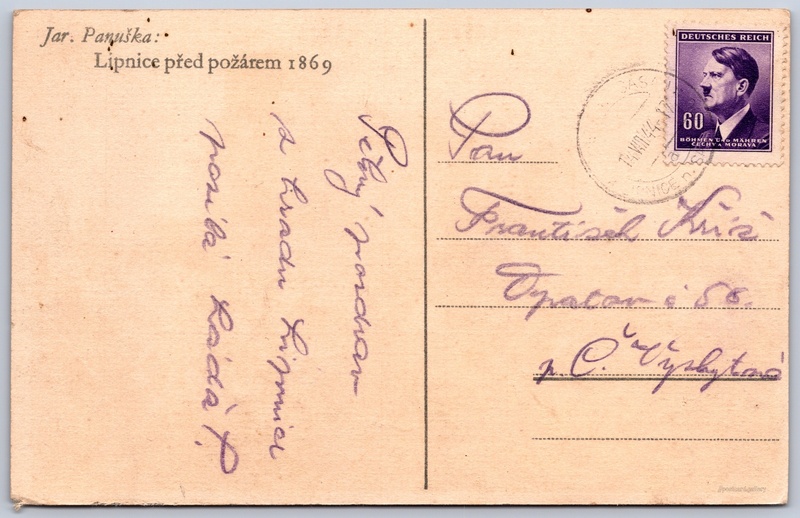 Jar. Panuška:
Lipnice před požárem 1869
Pěkný pozdrav
z hradu Lipnice
posílá Láďa P.
DEUTSCHES REICH
60
BÖHMEN UND MÄHREN
ČECHY A MORAVA
Pan
František Kříž
č 56.
p. Č. Vyskytná